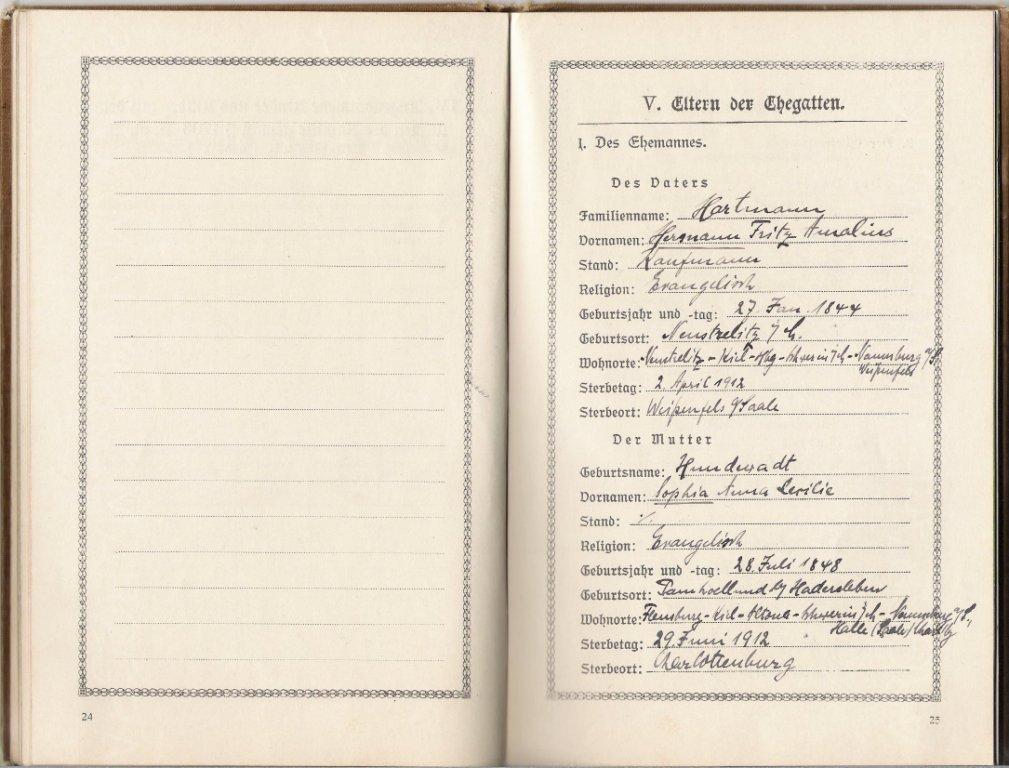 24
V. Eltern der Ehegatten.
I. Des Ehemannes.
Des Vaters
Familienname: Hartmann
Vornamen: Hermann Fritz Amalius
Stand: Kaufmann
Religion: Evangelisch
Geburtsjahr und -tag: 27. Jan. 1844
Geburtsort: Neustrelitz i/M.
Wohnorte: Neustrelitz - Kiel - Hbg - Schwerin i/M - Naumburg a/S.
Weißenfels
Sterbetag: 2. April 1912
Sterbeort: Weißenfels a/Saale
Der Mutter
Geburtsname: Hundewadt
Vornamen: Sophia Anna Cecilie
Stand: ./.
Religion: Evangelisch
Geburtsjahr und -tag: 28. Juli 1848
Geburtsort: Hadersleben
Wohnorte: Flensburg - Kiel - Altona - Schwerin i/M - Naumburg a/S,
Halle (Saale)
Sterbetag: 29 Juni 1912
Sterbeort: Charlottenburg
25